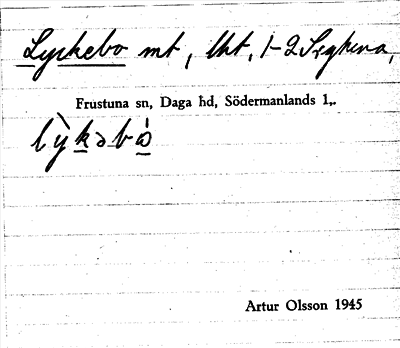 Lyckebo mt, lht, 1-2 Sighina,
Frustuna sn, Daga hd, Södermanlands l,.
lỳkəbὼ
Artur Olsson 1945